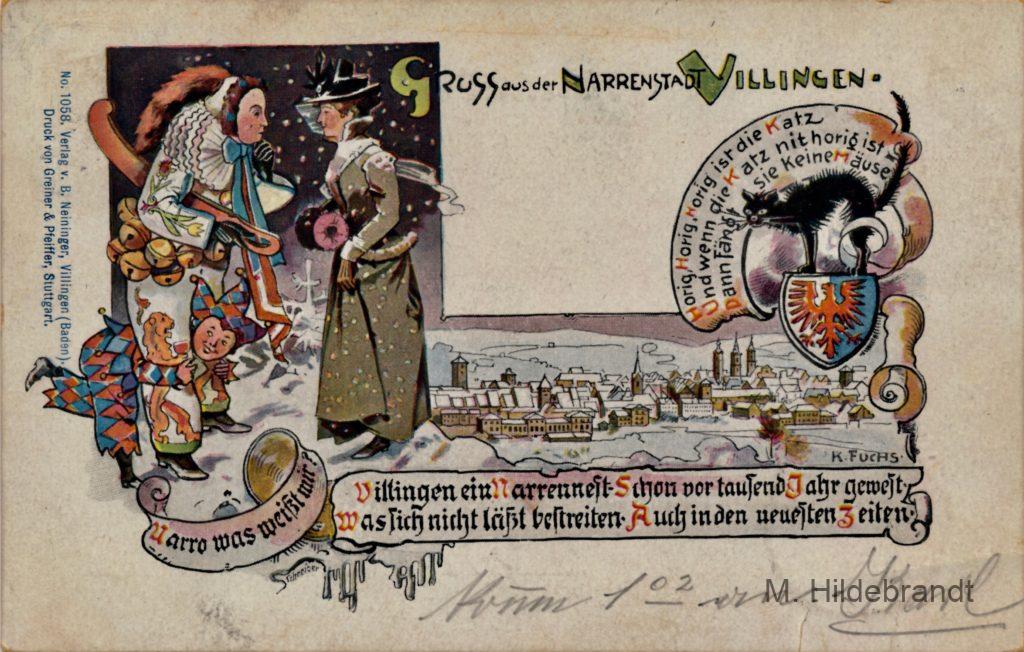 GRUSS aus der NARRENSTADT VILLINGEN.
Horig, Horig, Horig ist die Katz
Und wenn die Katz nit horig ist
Dann fängt sie keine Mäuse
No. 1058. Verlag v. B. Neininger, Villingen (Baden).
Druck von Greiner & Pfeiffer, Stuttgart.
K. FUCHS.
Narro was weißt mir?
Villingen ein Narrennest. Schon vor tausend Jahr gewest,
Was sich nicht läßt bestreiten. Auch in den neuesten Zeiten.
Schreiber
M. Hildebrandt